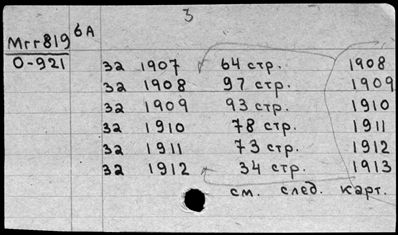 3
Мгг819 6А
О-921
за 1907 64 стр. 1908
за 1908 97 стр. 1909
за 1909 93 стр. 1910
за 1910 78 стр. 1911
за 1911 73 стр. 1912
за 1912 34 стр. 1913
см. след. карт.